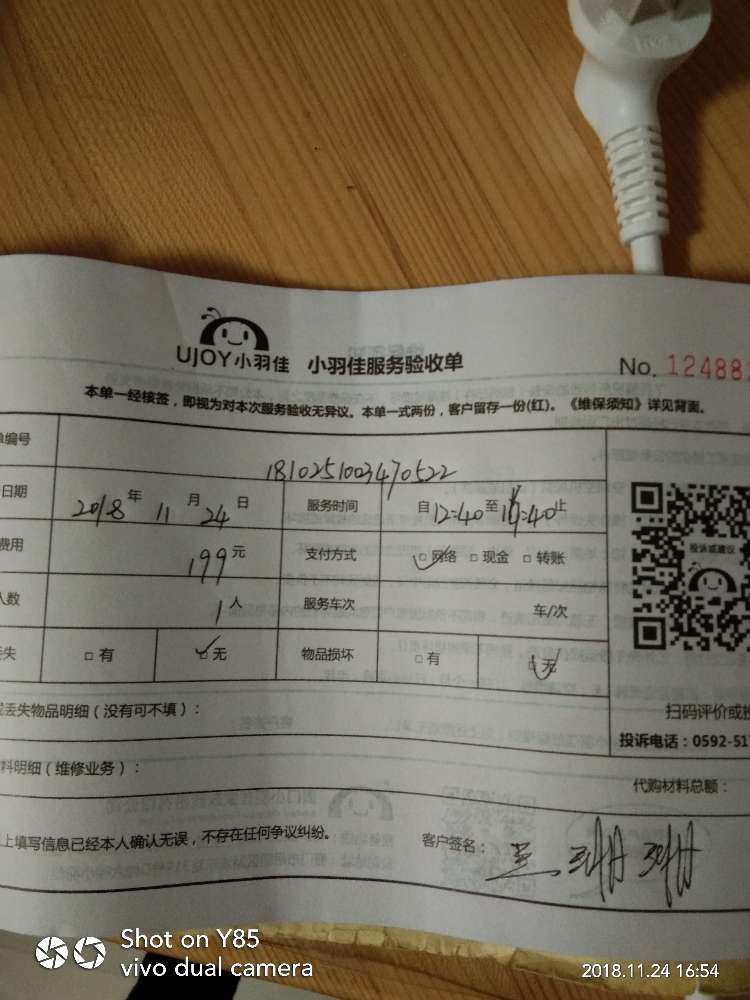 UJOY小羽佳 小羽佳服务验收单 No. 12488
本单一经接签，即视为对本次服务验收无异议。本单一式两份，客户留存一份(红)。《维保须知》详见背面。
编号 1810251003470522
日期 2018年 11月 24日 服务时间 自12:40至 :40止
费用 199元 支付方式 □网络 □现金 □转账
人数 1人 服务车次 车/次
失 □有 □无 物品损坏 □有 □无
投诉或建议
丢失物品明细（没有可不填）：
扫码评价或投
投诉电话：0592-517
料明细（维修业务）：
代购材料总额：
上填写信息已经本人确认无误，不存在任何争议纠纷。 客户签名：
Shot on Y85
vivo dual camera
2018.11.24 16:54